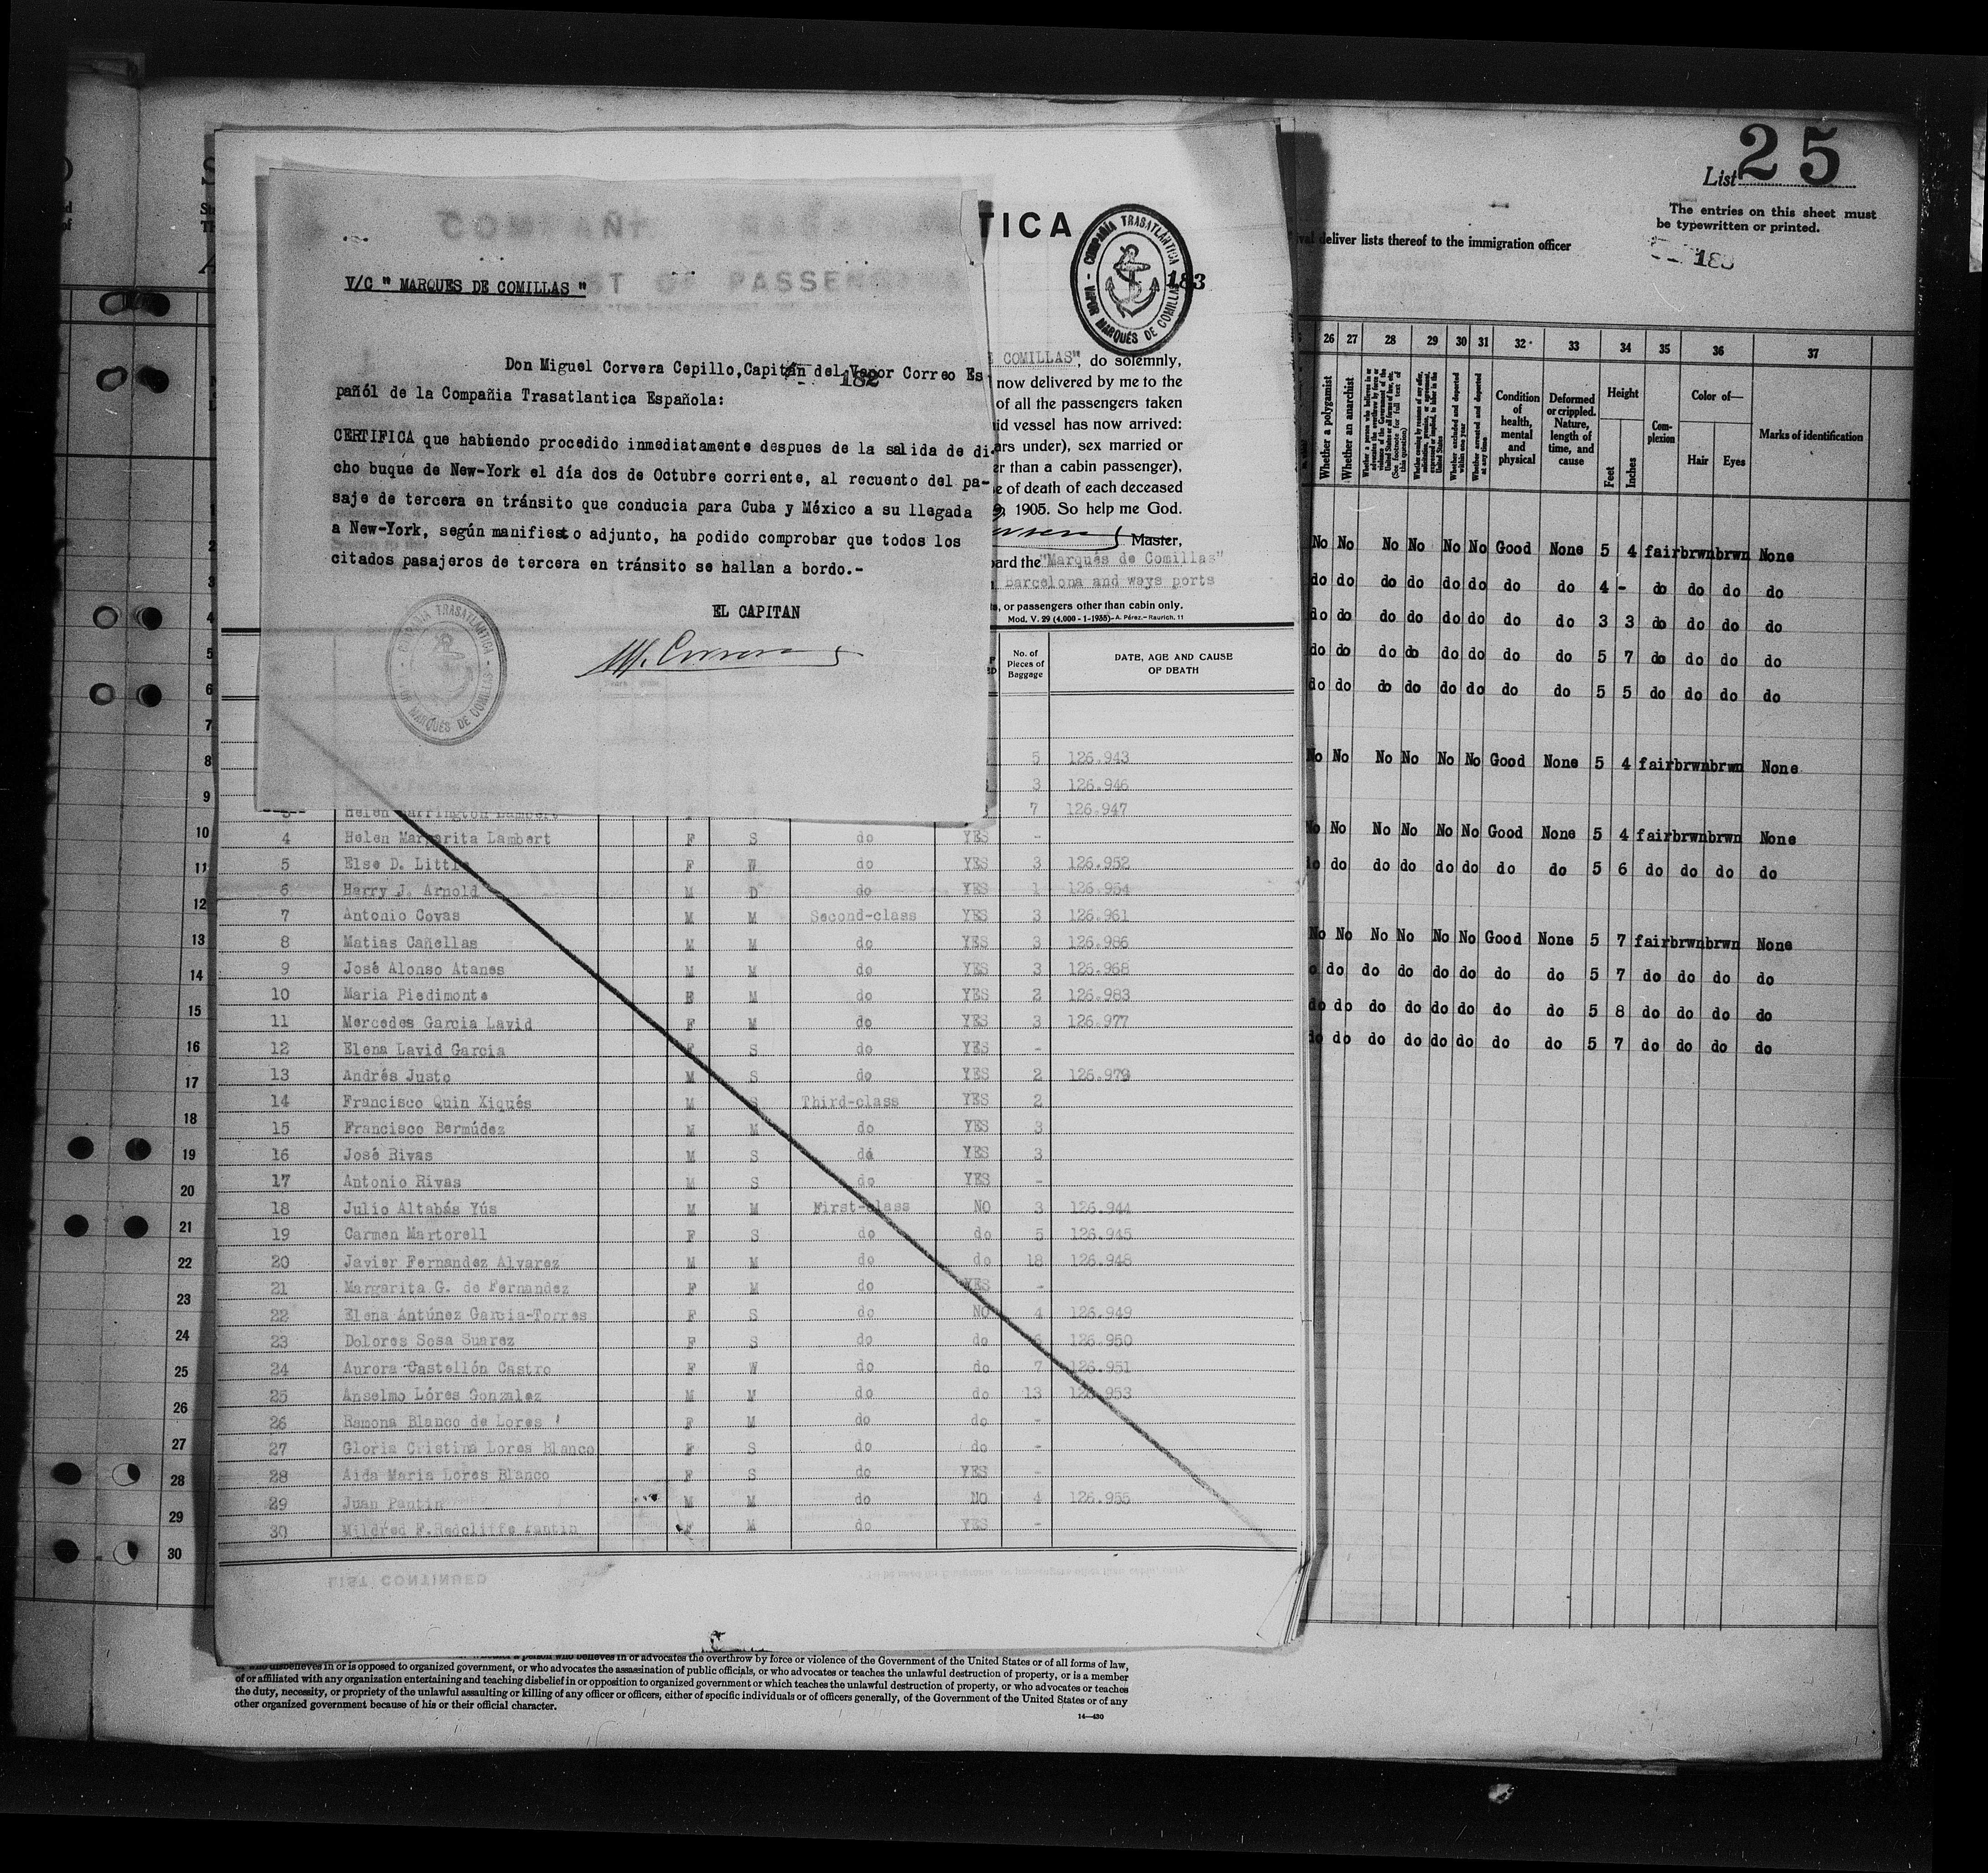 List 25
The entries on this sheet must
be typewritten or printed.
deliver lists thereof to the immigration officer
183
V/C " MARQUES DE COMILLAS "
Don Miguel Corvera Cepillo,Capitán del Vapor Correo Es-
pañól de la Compañia Trasatlantica Española:
182
CERTIFICA que habiendo procedido inmediatamente despues de la salida de di-
cho buque de New-York el día dos de Octubre corriente, al recuento del pa-
saje de tercera en tránsito que conducia para Cuba y México a su llegada
a New-York, según manifiesto adjunto, ha podido comprobar que todos los
citados pasajeros de tercera en tránsito se hallan a bordo.-
EL CAPITAN
M. Corvera
COMPAÑIA TRASATLANTICA
VAPOR MARQUÉS DE COMILLAS
TICA
COMPAÑIA TRASATLANTICA
VAPOR MARQUÉS DE COMILLAS
183
COMILLAS", do solemnly,
now delivered by me to the
of all the passengers taken
vessel has now arrived:
under), sex married or
than a cabin passenger),
of death of each deceased
1905. So help me God.
Master,
the "Marqués de Comillas"
Barcelona and ways ports
or passengers other than cabin only.
Mod. V. 29 (4.000 - 1-1935)-A. Pérez.-Raurich, 11
No. of Pieces of Baggage DATE, AGE AND CAUSE OF DEATH
5 126.943
3 126.946
3 Helen Harrington Lambert 7 126.947
4 Helen Margarita Lambert F S do YES -
5 Else D. Little F W do YES 3 126.952
6 Harry J. Arnold M D do YES 1 126.954
7 Antonio Covas M M Second-class YES 3 126.961
8 Matias Cañellas M M do YES 3 126.986
9 José Alonso Atanes M M do YES 3 126.968
10 Maria Piedimonte F M do YES 2 126.983
11 Mercedes Garcia Lavid F M do YES 3 126.977
12 Elena Lavid Garcia F S do YES -
13 Andrés Justo M S do YES 2 126.979
14 Francisco Quin Xiqués M S Third-class YES 2
15 Francisco Bermúdez M M do YES 3
16 José Rivas M S do YES 3
17 Antonio Rivas M S do YES -
18 Julio Altabás Yús M M First-class NO 3 126.944
19 Carmen Martorell F S do do 5 126.945
20 Javier Fernandez Alvarez M M do do 18 126.948
21 Margarita G. de Fernandez F M do YES -
22 Elena Antúnez Garcia-Torres F S do NO 4 126.949
23 Dolores Sosa Suarez F S do do 6 126.950
24 Aurora Castellón Castro F W do do 7 126.951
25 Anselmo Lóres Gonzalez M M do do 13 126.953
26 Ramona Blanco de Lores F M do do -
27 Gloria Cristina Lores Blanco F S do do -
28 Aida Maria Lores Blanco F S do YES -
29 Juan Pantin M M do NO 4 126.955
30 Mildred F.Redcliffe Pantin F M do YES -
LIST CONTINUED
26 27 28 29 30 31 32 33 34 35 36 37
Whether a polygamist
Whether an anarchist
Condition of health, mental and physical
Deformed or crippled. Nature, length of time, and cause
Height
Feet Inches
Complexion
Color of—
Hair Eyes
Marks of identification
No No No No No No Good None 5 4 fair brwn brwn None
do do do do do do do do 4 - do do do do
do do do do do do do do 3 3 do do do do
do do do do do do do do 5 7 do do do do
do do do do do do do do 5 5 do do do do
No No No No No No Good None 5 4 fair brwn brwn None
No No No No No No Good None 5 4 fair brwn brwn None
do do do do do do do do 5 6 do do do do
No No No No No No Good None 5 7 fair brwn brwn None
do do do do do do do do 5 7 do do do do
do do do do do do do do 5 8 do do do do
do do do do do do do do 5 7 do do do do
2
3
4
5
6
7
8
9
10
11
12
13
14
15
16
17
18
19
20
21
22
23
24
25
26
27
28
29
30
a person who believes in or advocates the overthrow by force or violence of the Government of the United States or of all forms of law,
or who disbelieves in or is opposed to organized government, or who advocates the assassination of public officials, or who advocates or teaches the unlawful destruction of property, or is a member
of or affiliated with any organization entertaining and teaching disbelief in or opposition to organized government or which teaches the unlawful destruction of property, or who advocates or teaches
the duty, necessity, or propriety of the unlawful assaulting or killing of any officer or officers, either of specific individuals or of officers generally, of the Government of the United States or of any
other organized government because of his or their official character.
14—430